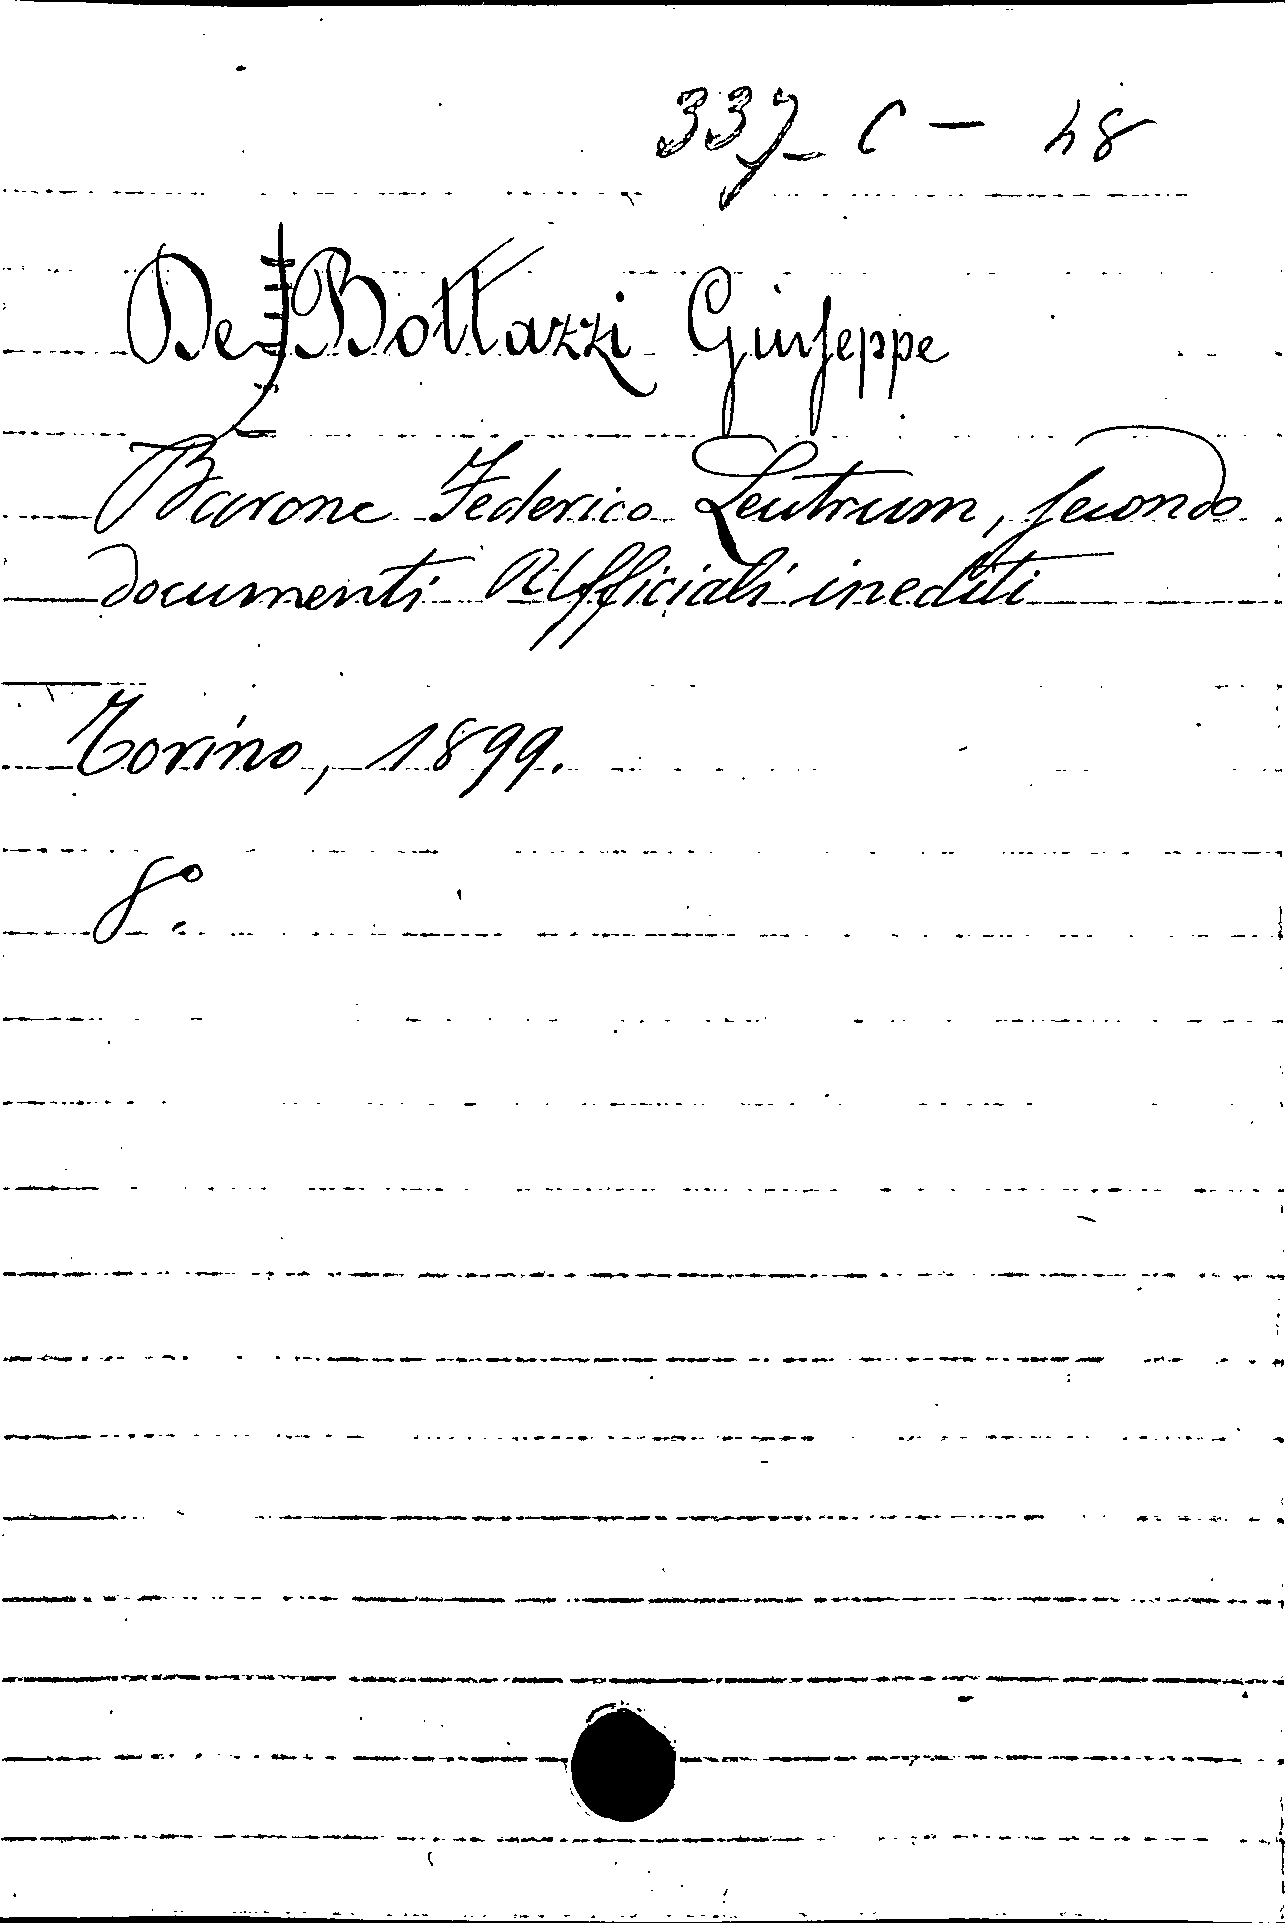 337 - C - 48
De Bottazzi Giuseppe
Barone Federico Leutrum, secondo
documenti Ufficiali inediti
Torino, 1899.
8°.